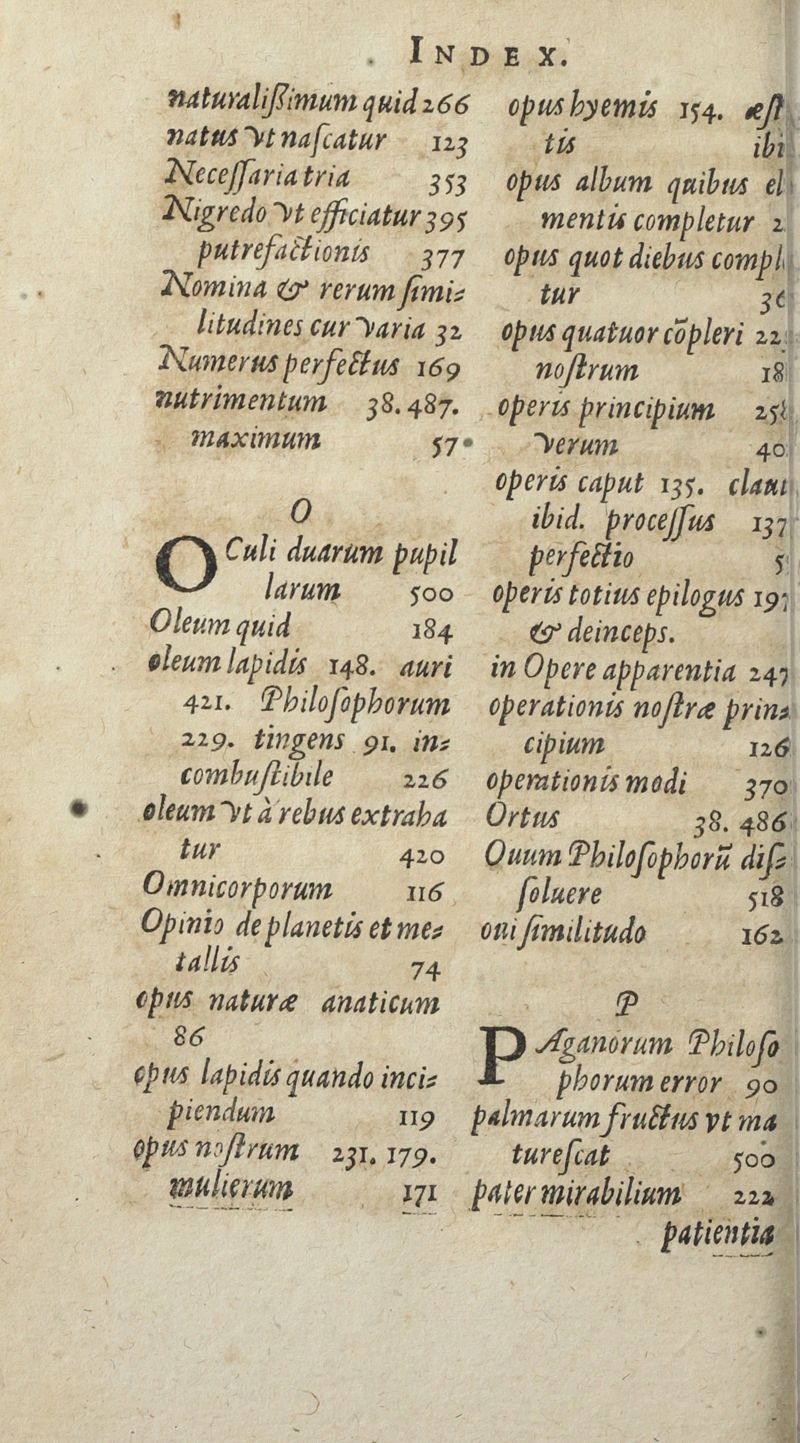 INDEX.
naturalißimum quid 266
natus vt nascatur 123
Necessaria tria 353
Nigredo vt efficiatur 395
putrefactionis 377
Nomina & rerum simi-
litudines cur varia 32
Numerus perfectus 169
nutrimentum 38. 487.
maximum 57.
O
OCuli duarum pupil
larum 500
Oleum quid 184
oleum lapidis 148. auri
421. Philosophorum
229. tingens 91. in-
combustibile 226
oleum vt à rebus extraha
tur 420
Omnicorporum 116
Opinio de planetis et me-
tallis 74
opus naturæ anaticum
86
opus lapidis quando inci-
piendum 119
opus nostrum 231. 179.
mulierum 171
opus hyemis 154. æst
tis ibi
opus album quibus el
mentis completur 2
opus quot diebus compl
tur 36
opus quatuor cõpleri 22
nostrum 18
operis principium 25
verum 40
operis caput 135. claui
ibid. processus 137
perfectio 5
operis totius epilogus 19
& deinceps.
in Opere apparentia 247
operationis nostræ prin-
cipium 126
operationis modi 370
Ortus 38. 486
Ouum Philosophorũ dis-
soluere 518
oui similitudo 162
P
PAganorum Philoso
phorum error 90
palmarum fructus vt ma
turescat 500
pater mirabilium 222
patientia